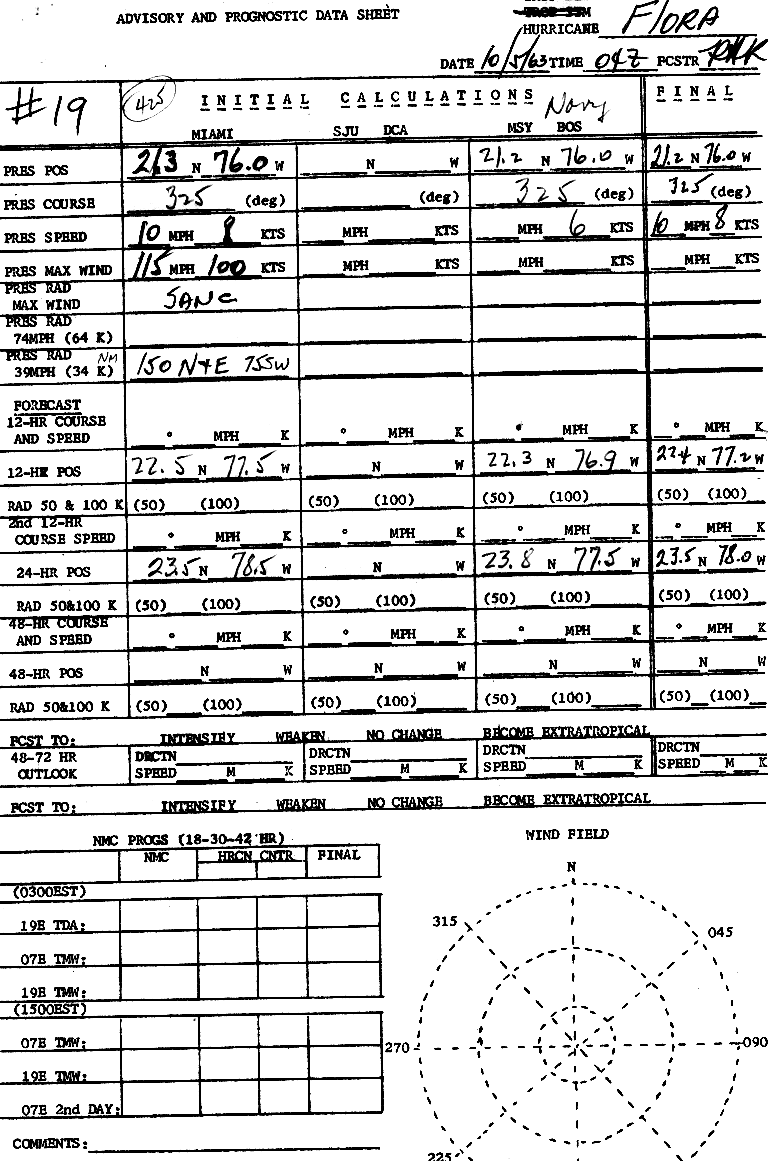 ADVISORY AND PROGNOSTIC DATA SHEET
HURRICANE FlORA
DATE 10/5/63 TIME 04Z FCSTR
#19 425 INITIAL CALCULATIONS FINAL
Navy
MIAMI SJU DCA MSY BOS
PRES POS 21.3 N 76.0 W N W 21.2 N 76.0 W 21.2 N 76.0 W
PRES COURSE 325 (deg) (deg) 325 (deg) 325 (deg)
PRES SPEED 10 MPH 8 KTS MPH KTS MPH 6 KTS 10 MPH 8 KTS
PRES MAX WIND 115 MPH 100 KTS MPH KTS MPH KTS MPH KTS
PRES RAD
MAX WIND
PRES RAD
74MPH (64 K)
PRES RAD NM
39MPH (34 K) 150 N+E 75SW
FORECAST
12-HR COURSE
AND SPEED ° MPH K ° MPH K ° MPH K ° MPH K
12-HR POS 22.5 N 77.5 W N W 22.3 N 76.9 W 22.4 N 77.2 W
RAD 50 & 100 K (50) (100) (50) (100) (50) (100) (50) (100)
2nd 12-HR
COURSE SPEED ° MPH K ° MPH K ° MPH K ° MPH K
24-HR POS 23.5 N 78.5 W N W 23.8 N 77.5 W 23.5 N 78.0 W
RAD 50&100 K (50) (100) (50) (100) (50) (100) (50) (100)
48-HR COURSE
AND SPEED ° MPH K ° MPH K ° MPH K ° MPH K
48-HR POS N W N W N W N W
RAD 50&100 K (50) (100) (50) (100) (50) (100) (50) (100)
FCST TO: INTENSIFY WEAKEN NO CHANGE BECOME EXTRATROPICAL
48-72 HR DRCTN DRCTN DRCTN DRCTN
OUTLOOK SPEED M K SPEED M K SPEED M K SPEED M K
FCST TO: INTENSIFY WEAKEN NO CHANGE BECOME EXTRATROPICAL
NMC PROGS (18-30-42 HR)
NMC HRCN CNTR FINAL
(0300EST)
19E TDA:
07E TMW:
19E TMW:
(1500EST)
07E TMW:
19E TMW:
07E 2nd DAY:
COMMENTS:
WIND FIELD
N
315 045
270 090
225